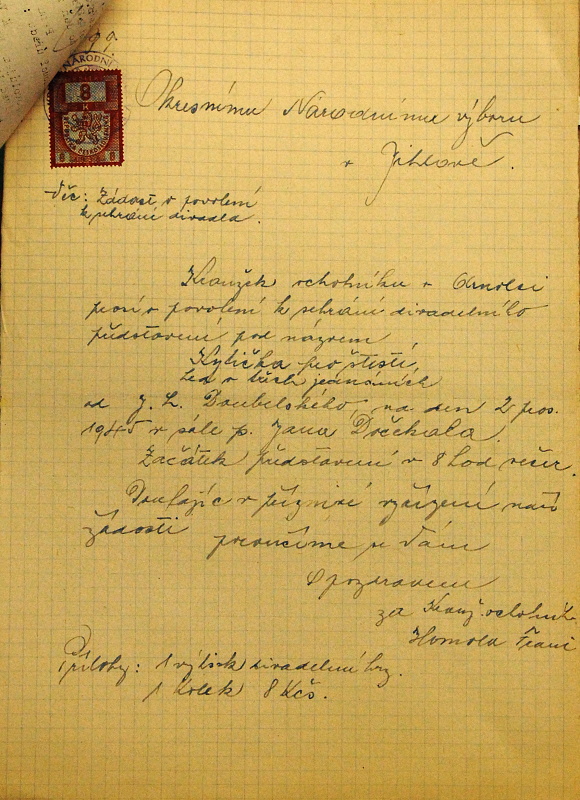 99.
NÁRODNÍ
8
K
REPUBLIKA ČESKOSLOVENSKÁ
8 8
Okresnímu Národnímu výboru
v Jihlavě.
Věc: Žádost o povolení
k sehrání divadla.
Kroužek ochotníků v Arnolci
prosí o povolení k sehrání divadelního
představení pod názvem
Kytička pro štěstí,
ves. v třech jednáních
od J. L. Doubelského, na den 2 pros.
1945 v sále p. Jana Dočekala.
Začátek představení v 8 hod večer.
Doufajíc v příznivé vyřízení naší
žádosti poroučíme se Vám
S pozdravem
za Krouž. ochotníků
Homola Franc
Přílohy: 1 výtisk divadelní hry.
1 Kolek 8 Kčs.